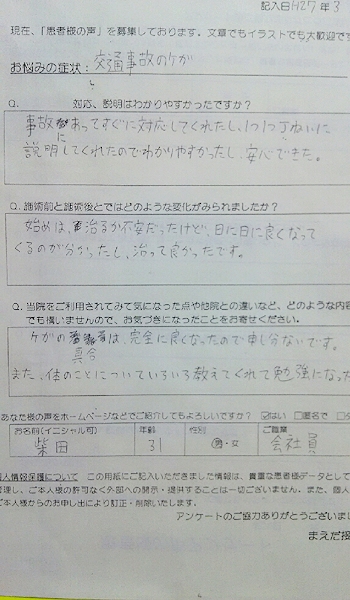 記入日H27年3
現在、「患者様の声」を募集しております。文章でもイラストでも大歓迎です
お悩みの症状: 交通事故のケガ
Q. 対応、説明はわかりやすかったですか？
事故にあってすぐに対応してくれたし、1つ1つ丁ねいに
説明してくれたのでわかりやすかったし、安心できた。
Q. 施術前と施術後とではどのような変化がみられましたか？
始めは、治るか不安だったけど、日に日に良くなって
くるのが分かったし、治って良かったです。
Q. 当院をご利用されてみて気になった点や他院との違いなど、どのような内容
でも構いませんので、お気づきになったことをお寄せください。
ケガの具合は、完全に良くなったので申し分ないです。
また、体のことについていろいろ教えてくれて勉強になった
あなた様の声をホームページなどでご紹介してもよろしいですか？ ☑はい □匿名で
お名前(イニシャル可) 年齢 性別 ご職業
柴田 31 男・女 会社員
個人情報保護について この用紙にご記入いただきました情報は、貴重な患者様データとして
管理し、ご本人様の許可なく外部への開示・提供することは一切ございません。また、個人
ご本人様からのお申し出により訂正・削除いたします。
アンケートのご協力ありがとうございまし
まえだ接